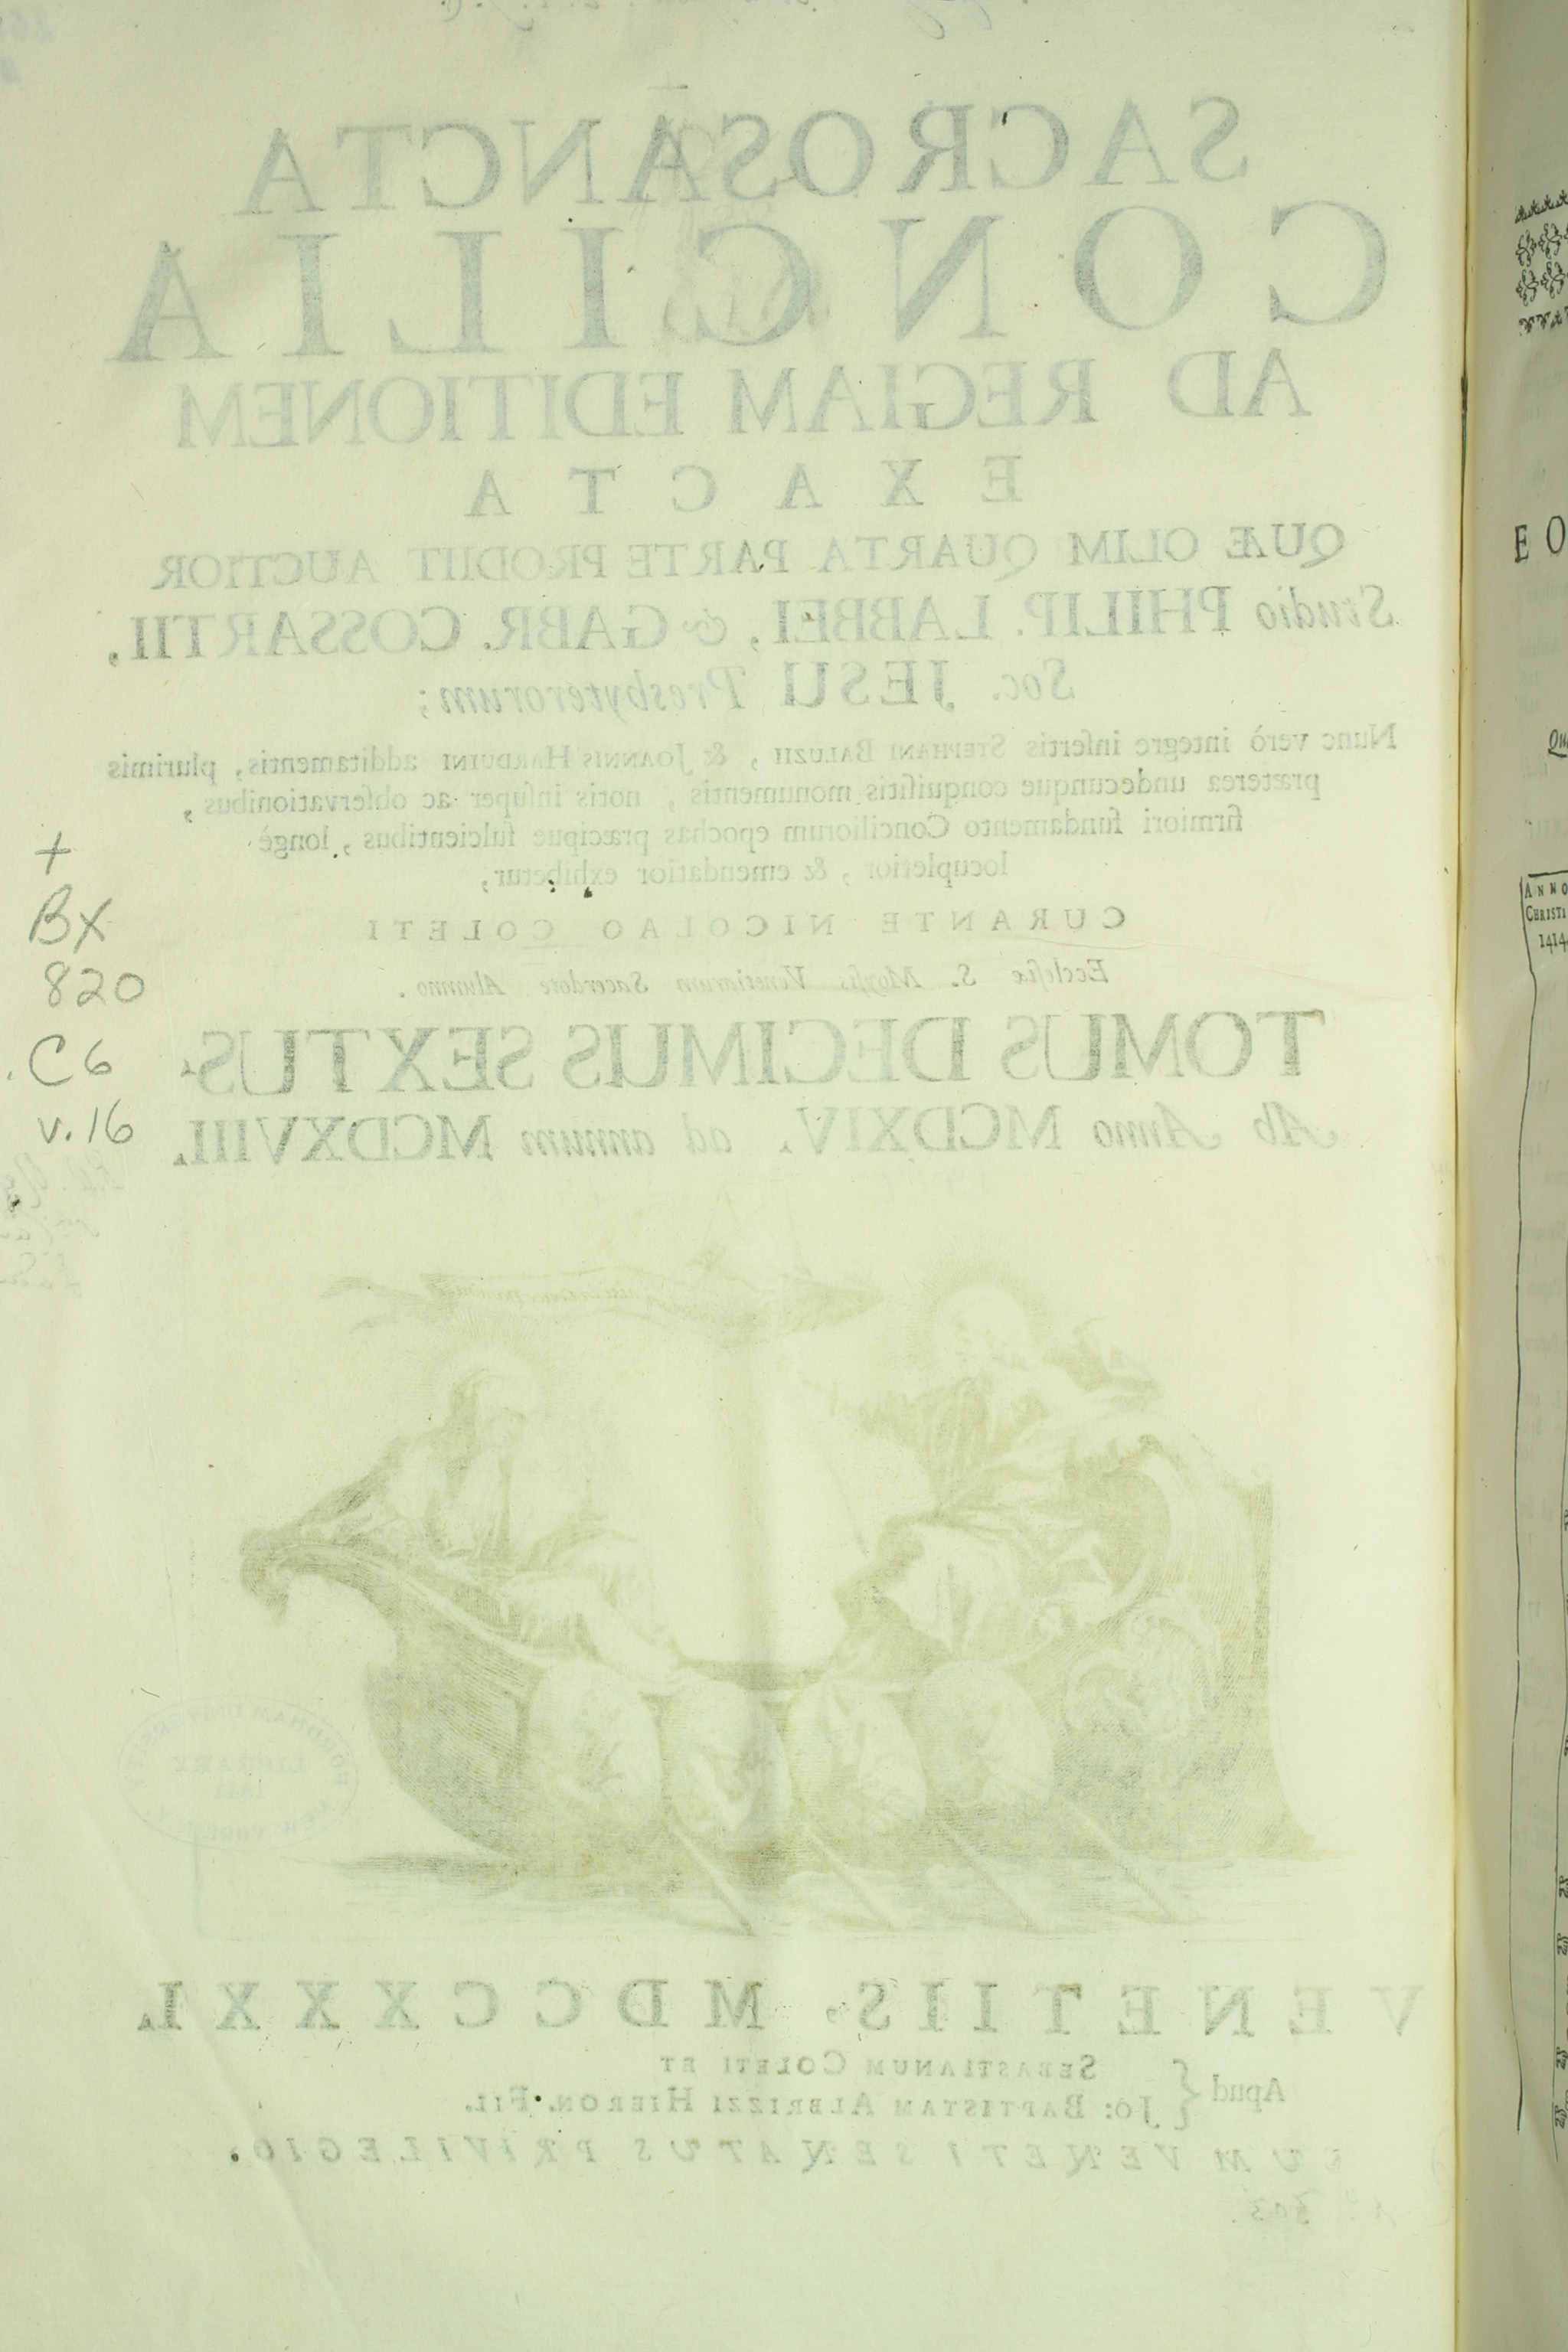 SACROSANCTA
CONCILIA
AD REGIAM EDITIONEM
EXACTA
QUÆ OLIM QUARTA PARTE PRODIIT AUCTIOR
Studio PHILIP. LABBEI, & GABR. COSSARTII,
Soc. JESU Presbyterorum;
Nunc verò integre insertis STEPHANI BALUZII, & JOANNIS HARDUINI additamentis, plurimis
præterea undecunque conquisitis monumentis, notis insuper ac observationibus,
firmiori fundamento Conciliorum epochas præcipue fulcientibus, longè
locupletior, & emendatior exhibetur,
CURANTE NICOLAO COLETI
Ecclesiæ S. Moysis Venetiarum Sacerdote Alumno.
TOMUS DECIMUS SEXTUS.
Ab Anno MCDXIV. ad annum MCDXVIII.
+
BX
820
.C6
v.16
FORDHAM UNIVERSITY
LIBRARY
NEW YORK
VENETIIS, MDCCXXXI.
Apud { SEBASTIANUM COLETI ET
JO: BAPTISTAM ALBRIZZI HIERON. FIL.
CUM VENETI SENATUS PRIVILEGIO.
E O
Qu
ANNO
CHRISTI
1414